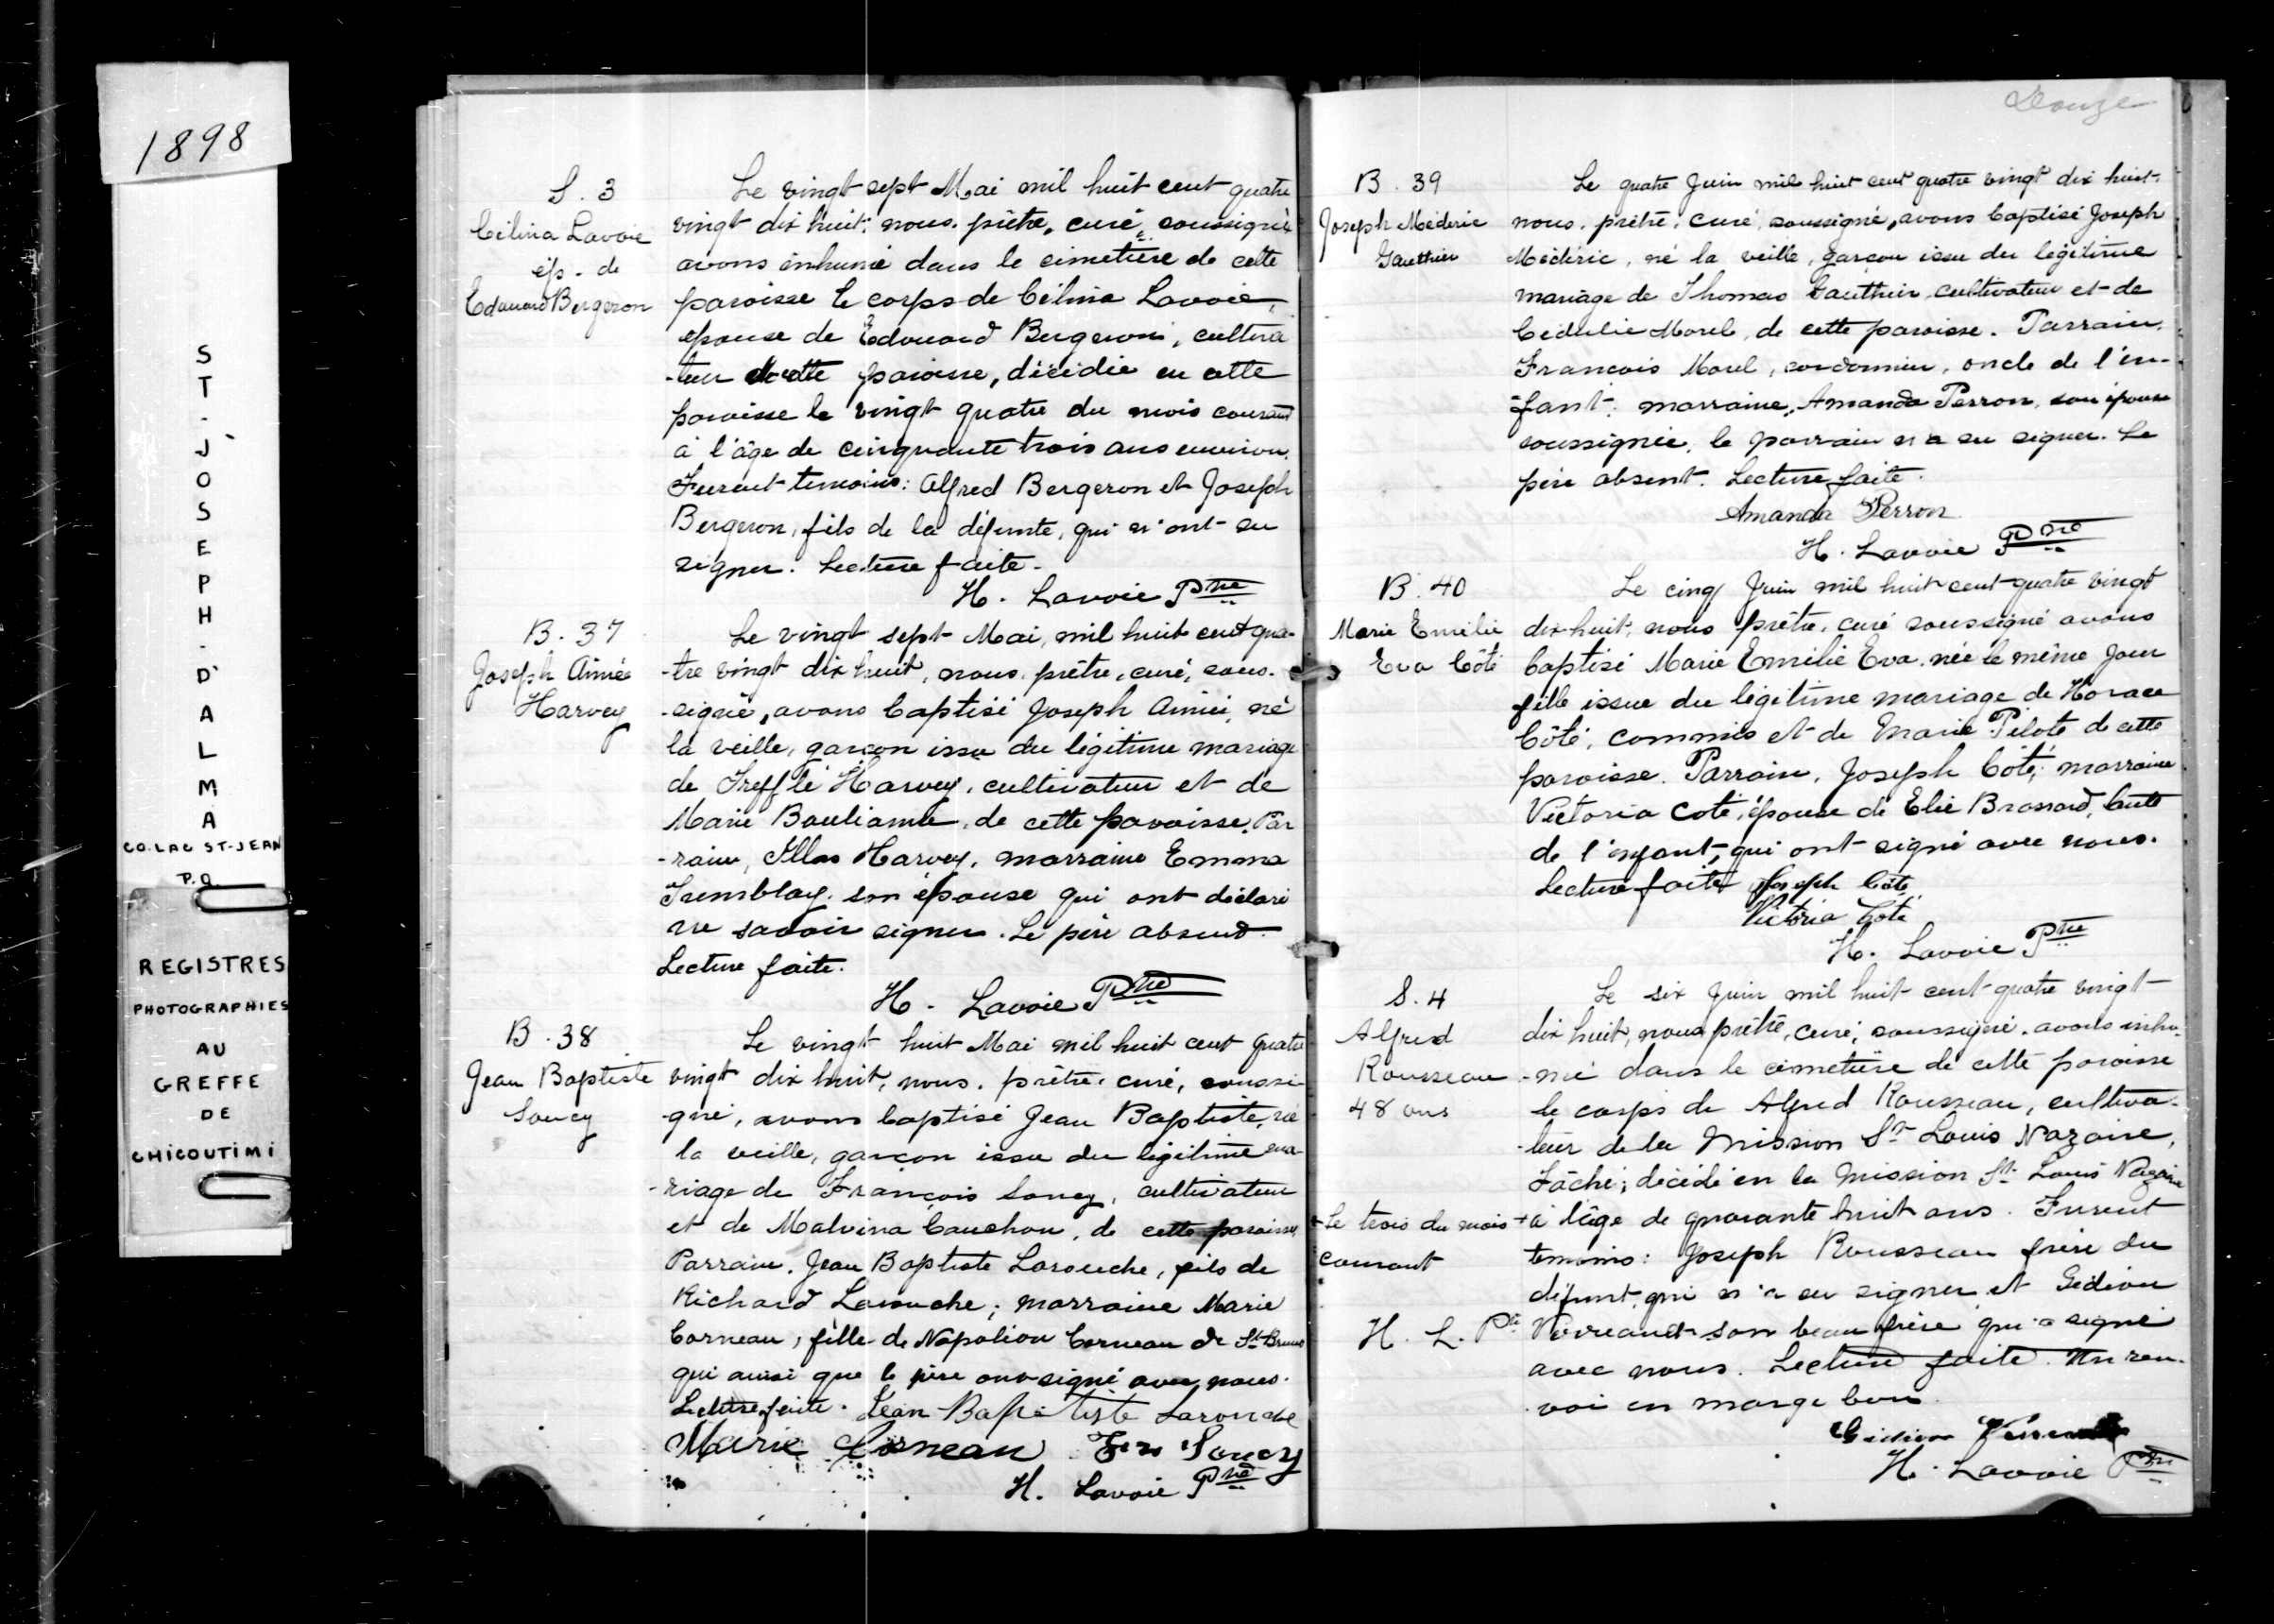 1898
ST-JOSEPH-D'ALMA
CO. LAC ST-JEAN
P.Q.
REGISTRES
PHOTOGRAPHIES
AU
GREFFE
DE
CHICOUTIMI
S. 3
Célina Lavoie
ép. de
Edouard Bergeron
Le vingt sept Mai mil huit cent quatre
vingt dix huit, nous, prêtre, curé, soussigné
avons inhumé dans le cimetière de cette
paroisse le corps de Célina Lavoie,
épouse de Edouard Bergeron, cultiva
-teur de cette paroisse, décédée en cette
paroisse le vingt quatre du mois courant
à l'âge de cinquante trois ans environ.
Furent temoins: Alfred Bergeron et Joseph
Bergeron, fils de la défunte, qui n'ont su
signer. Lecture faite.
H. Lavoie Ptre
B. 37
Joseph Aimée
Harvey
Le vingt sept Mai, mil huit cent qua-
-tre vingt dix huit, nous, prêtre, curé, sous-
-signé, avons baptisé Joseph Aimé, né
la veille, garçon issu du légitime mariage
de Trefflé Harvey, cultivateur et de
Marie Boulianne, de cette paroisse. Par
-rain, Harvey, marraine Emma
Tremblay, son épouse qui ont déclaré
ne savoir signer. Le père absent.
Lecture faite.
H. Lavoie Ptre
B. 38
Jean Baptiste
Soucy
Le vingt huit Mai mil huit cent quatre
vingt dix huit, nous, prêtre, curé, soussi-
-gné, avons baptisé Jean Baptiste, né
la veille, garçon issu du légitime ma-
-riage de François Soucy, cultivateur
et de Malvina Cauchon, de cette paroisse
Parrain, Jean Baptiste Larouche, fils de
Richard Larouche; marraine Marie
Corneau, fille de Napoléon Corneau de St Bruno
qui ainsi que le père ont signé avec nous.
Lecture faite. Jean Baptiste Larouche
Marie Corneau Frs Soucy
H. Lavoie Ptre
Douze
B. 39
Joseph Méderic
Gauthier
Le quatre Juin mil huit cent quatre vingt dix huit,
nous, prêtre, curé, soussigné, avons baptisé Joseph
Médéric, né la veille, garçon issu du légitime
mariage de Thomas Gauthier, cultivateur et de
Cédulie Morel, de cette paroisse. Parrain,
Francois Morel, cordonnier, oncle de l'en-
fant; marraine, Amanda Perron, son épouse
soussignée, le parrain n'a su signer. Le
père absent. Lecture faite.
Amanda Perron
H. Lavoie Ptre
B. 40
Marie Emélie
Eva Côté
Le cinq Juin mil huit cent quatre vingt
dix huit, nous prêtre, curé soussigné avons
baptisé Marie Emélie Eva, née le même jour
fille issue du légitime mariage de Horace
Côté, commis et de Marie Pilote de cette
paroisse. Parrain, Joseph Côté; marraine
Victoria Coté, épouse de Elie Brassard, tante
de l'enfant, qui ont signé avec nous.
Lecture faite Joseph Côté
Victoria Côté
H. Lavoie Ptre
S. 4
Alfred
Rousseau
48 ans
Le six Juin mil huit cent quatre vingt
dix huit, nous prêtre, curé, soussigné, avons inhu-
-mé dans le cimetière de cette paroisse
le corps de Alfred Rousseau, cultiva-
-teur de la Mission St Louis Nazaire,
Taché; décédé en la mission St Louis Nazaire
+ Le trois du mois
courant
H. L. Ptre
+ à l'âge de quarante huit ans. Furent
temoins: Joseph Rousseau frère du
défunt, qui n'a su signer et Gédéon
Verreault son beau frère qui a signé
avec nous. Lecture faite. Un ren-
voi en marge bon.
Gédéon
H. Lavoie Ptre